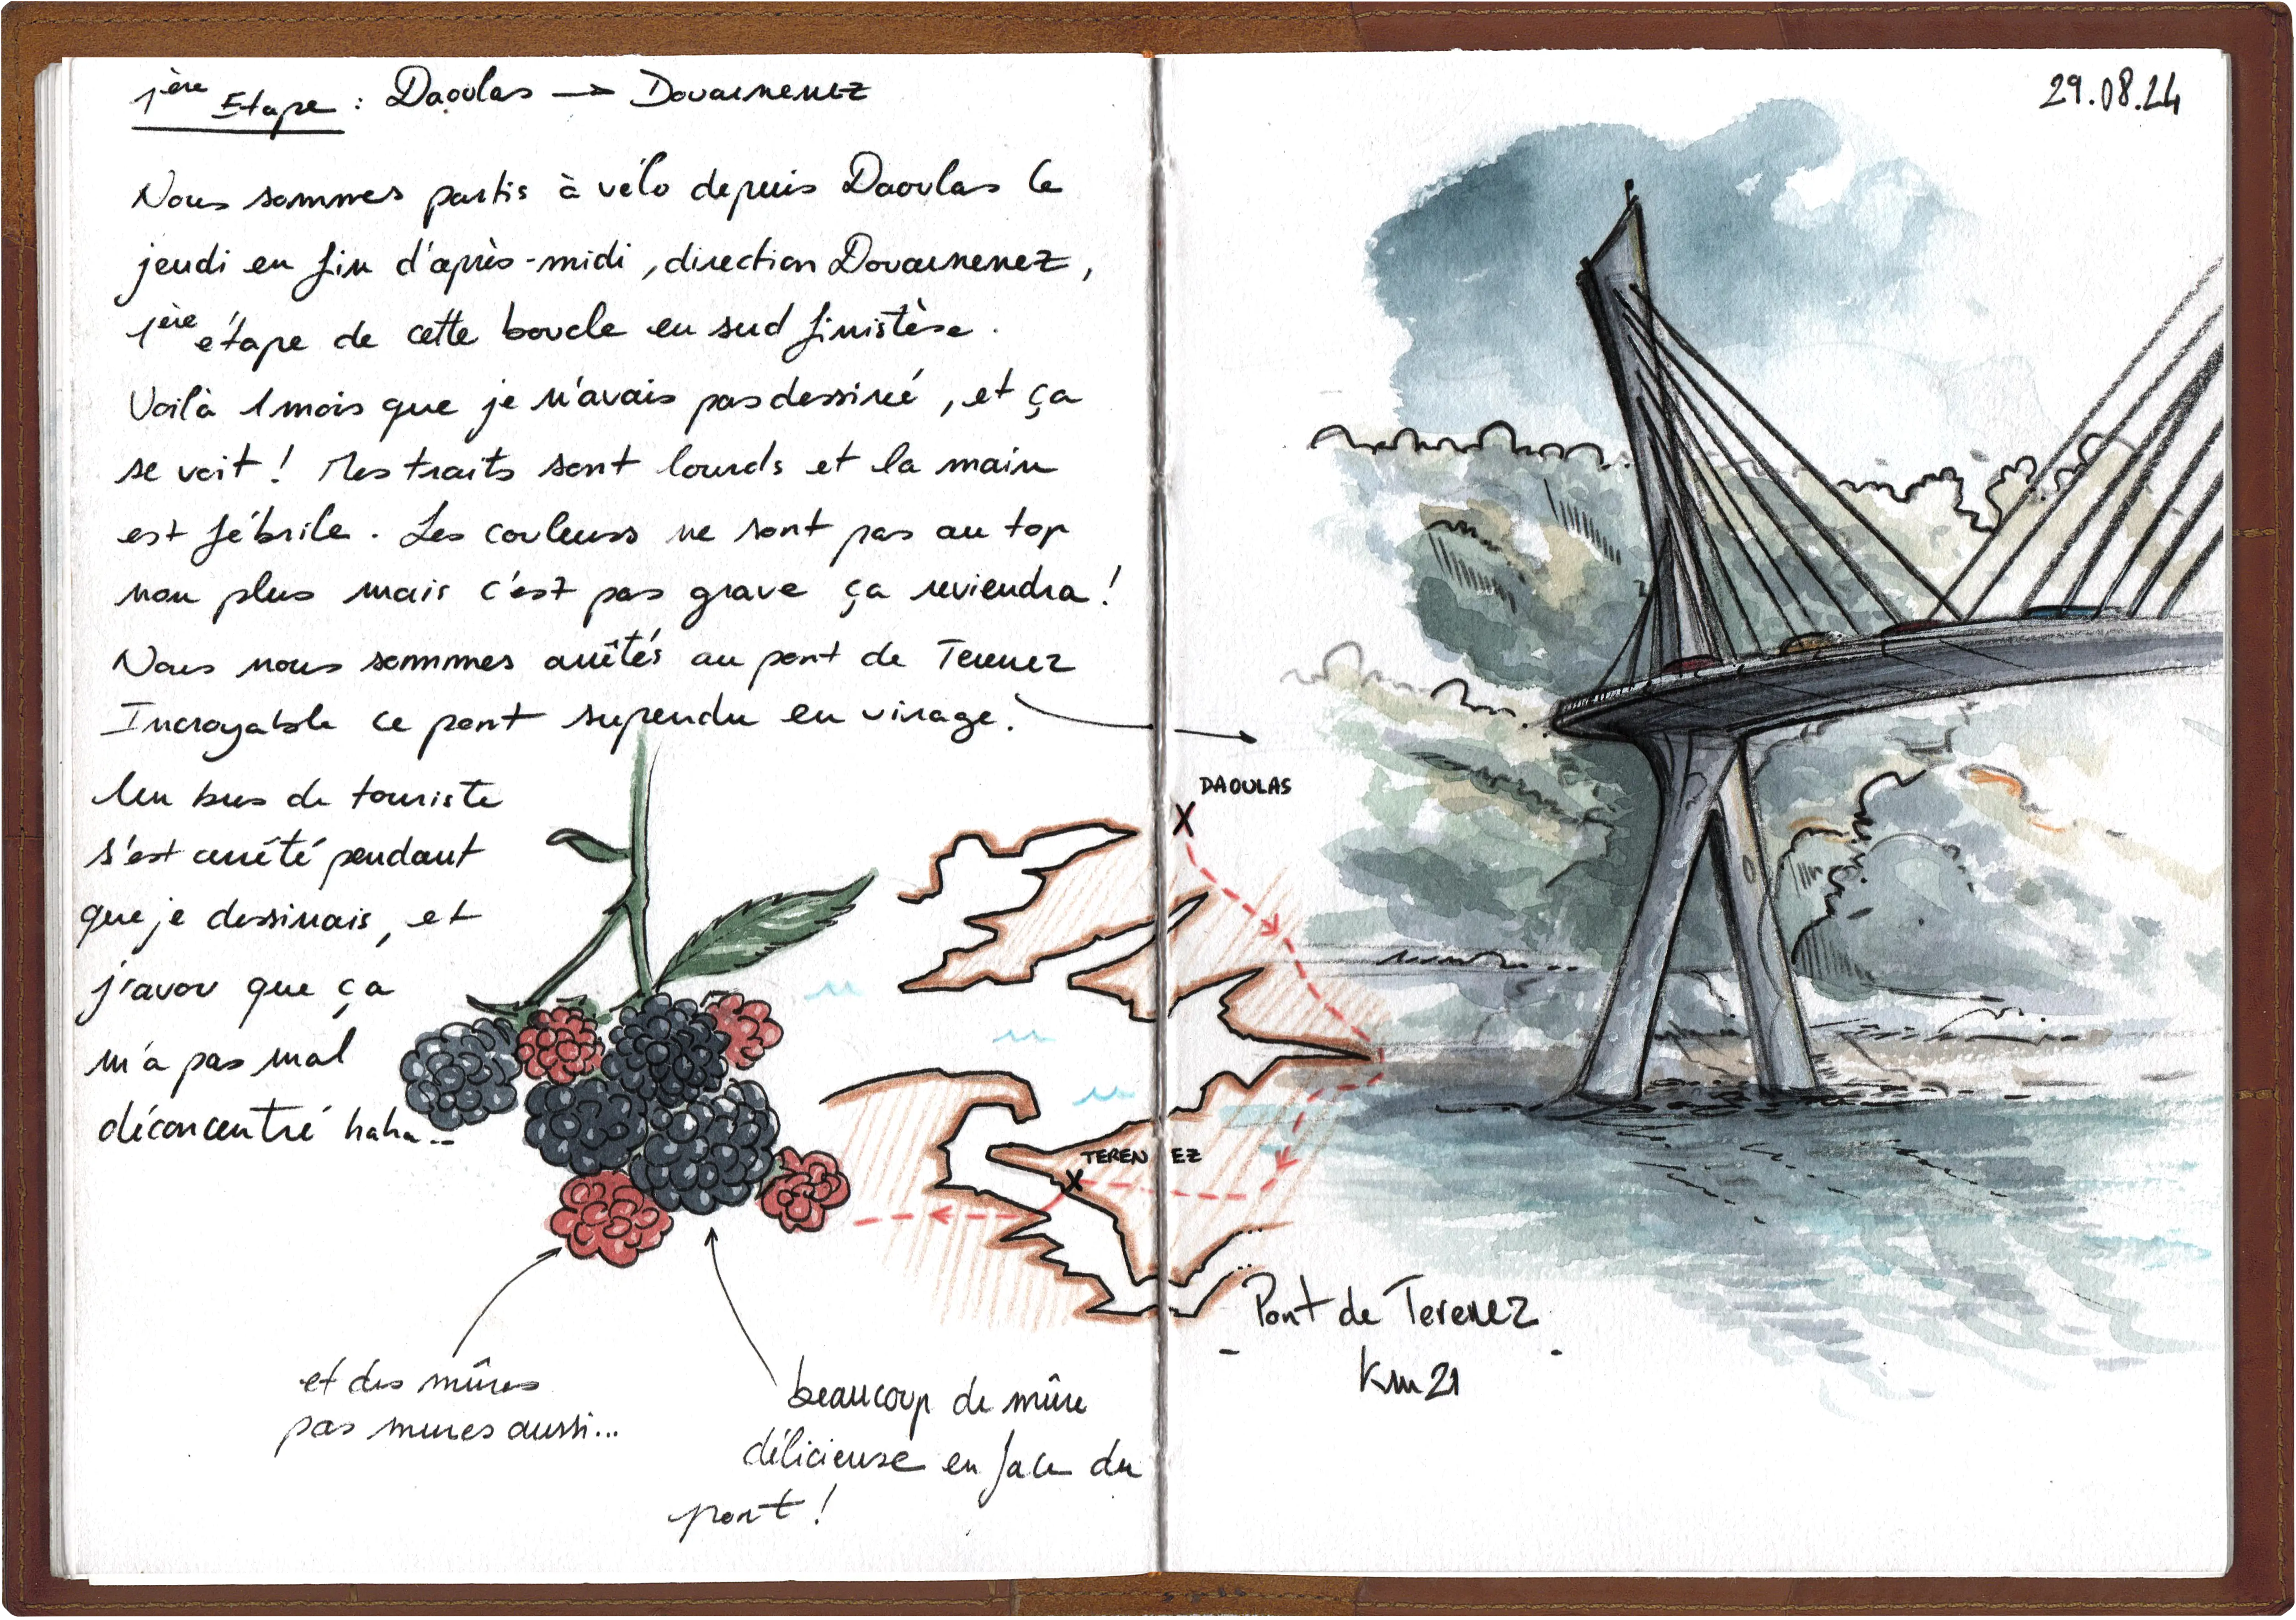 1ère Etape : Daoulas → Douarnenez
Nous sommes partis à vélo depuis Daoulas le
jeudi en fin d'après-midi, direction Douarnenez,
1ère étape de cette boucle en sud finistère.
Voilà 1 mois que je n'avais pas dessiné, et ça
se voit ! Mes traits sont lourds et la main
est fébrile. Les couleurs ne sont pas au top
non plus mais c'est pas grave ça reviendra !
Nous nous sommes arrêtés au pont de Terenez
Incroyable ce pont supendu en virage.
Un bus de touriste
s'est arrêté pendant
que je dessinais, et
j'avou que ça
m'a pas mal
déconcentré haha..
et des mûres
pas mures aussi...
beaucoup de mûre
délicieuse en face du
pont !
29.08.24
DAOULAS
TERENEZ
Pont de Terenez
- -
Km 21